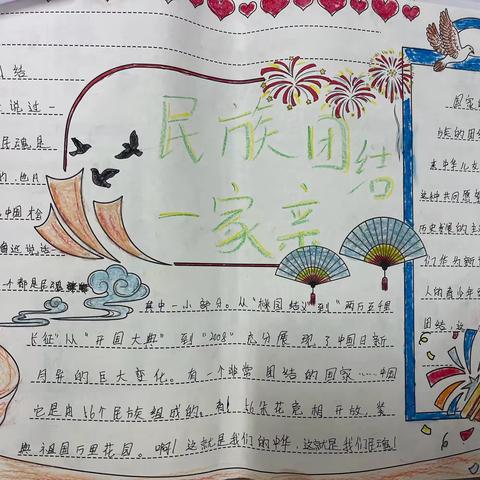 民族团结
一家亲
结
说过一
民魂是
的,也只
中国才会
鲁迅说法
个都是民魂
其中一小部分。从“桃园结义”到“两万五千里
长征”从“开国大典”到“2008”充分展现了中国日新
月异的巨大变化。有一个非常团结的国家……中国
它是由56个民族组成的。有56朵花竞相开放,装
典祖国万里花园。啊!这就是我们的中华,这就是我们民魂!
国家
族的团结
来中华儿女
这种共同愿望
历史发展的主
们作为新
人的青少年
团结,这